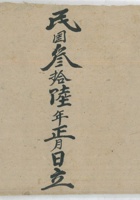 民国叁拾陸年正月日立